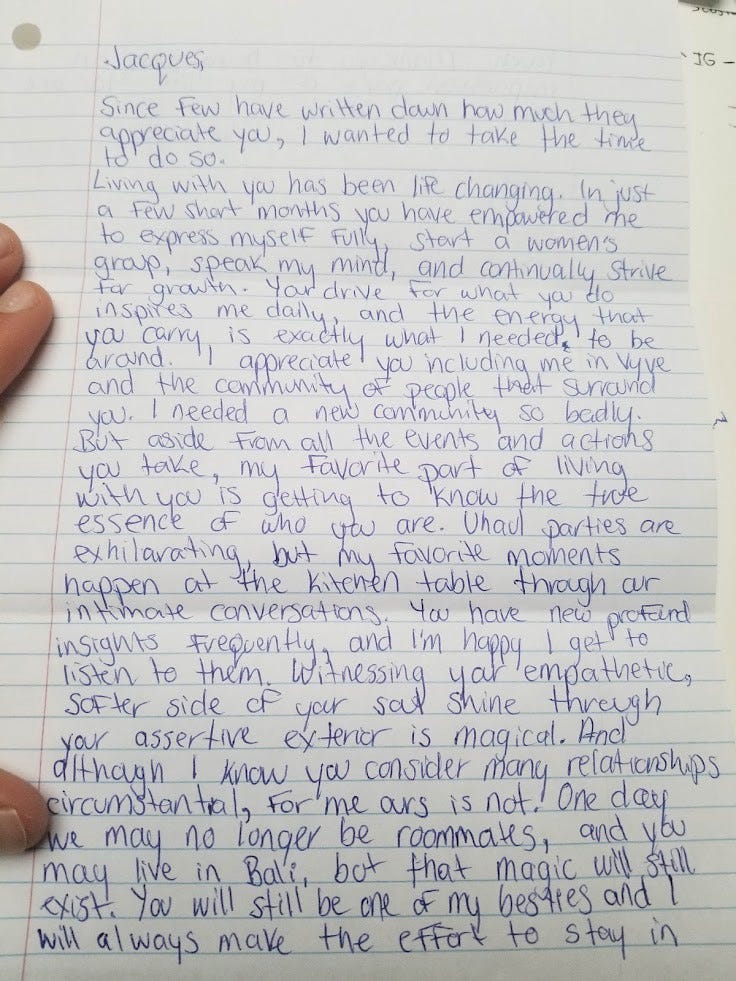 Jacques,
Since few have written down how much they
appreciate you, I wanted to take the time
to do so.
Living with you has been life changing. In just
a few short months you have empowered me
to express myself fully, start a women's
group, speak my mind, and continually strive
for growth. Your drive for what you do
inspires me daily, and the energy that
you carry, is exactly what I needed, to be
around. I appreciate you including me in Vyve
and the community of people that surround
you. I needed a new community so badly.
But aside from all the events and actions
you take, my favorite part of living
with you is getting to know the true
essence of who you are. Uhaul parties are
exhilarating, but my favorite moments
happen at the kitchen table through our
intimate conversations. You have new profound
insights frequently, and I'm happy I get to
listen to them. Witnessing your empathetic,
softer side of your soul shine through
your assertive exterior is magical. And
although I know you consider many relationships
circumstantial, for me ours is not. One day
we may no longer be roommates, and you
may live in Bali, but that magic will still
exist. You will still be one of my besties and I
will always make the effort to stay in
IG -